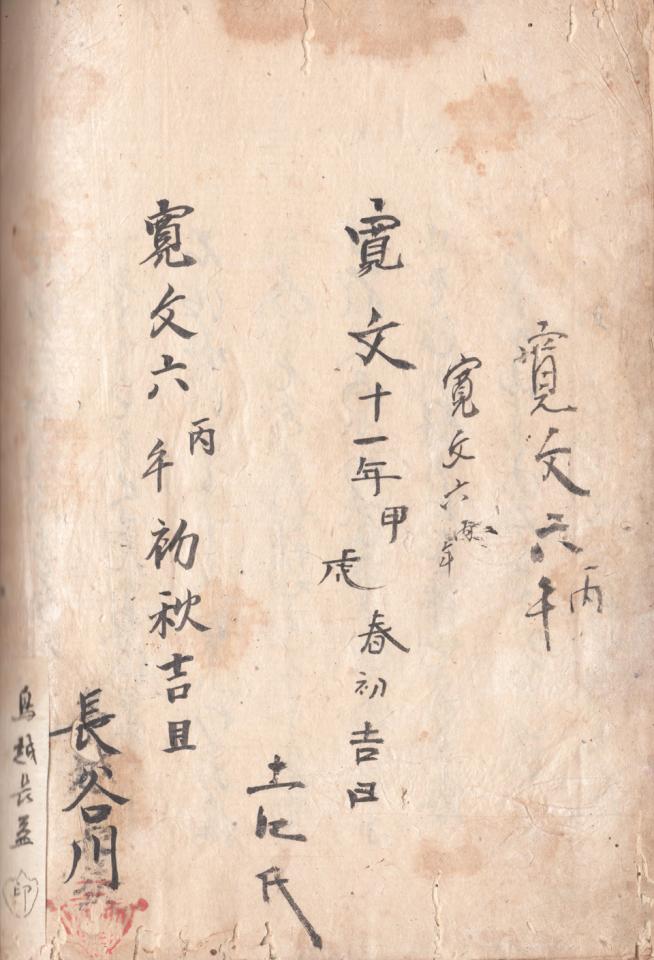 寛文六丙午
寛文六 年
寛文十一年甲
虎春初吉日
土 氏
寛文六丙午初秋吉旦
長谷川
鳥越長益 印